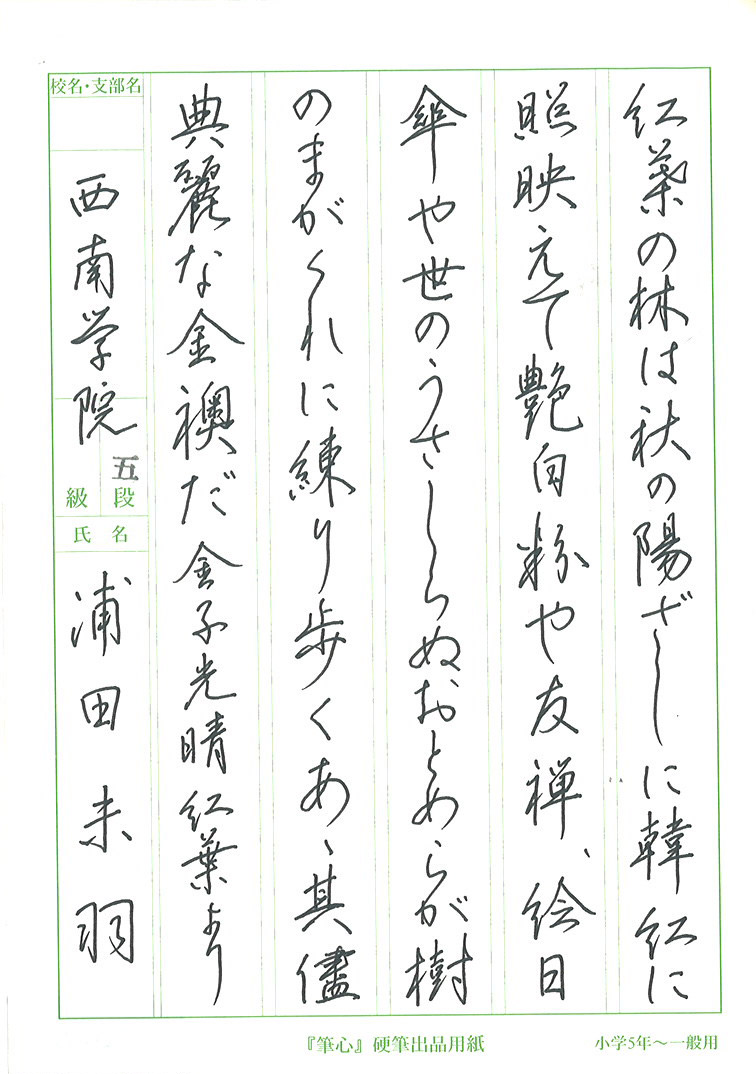 紅葉の林は秋の陽ざしに韓紅に
照映えて艶白粉や友禅、絵日
傘や世のうさしらぬおとめらが樹
のまがくれに練り歩くあゝ其儘
典麗な金襖だ 金子光晴 紅葉より
校名・支部名
西南学院
五
級 段
氏名
浦田未羽
『筆心』硬筆出品用紙
小学5年～一般用